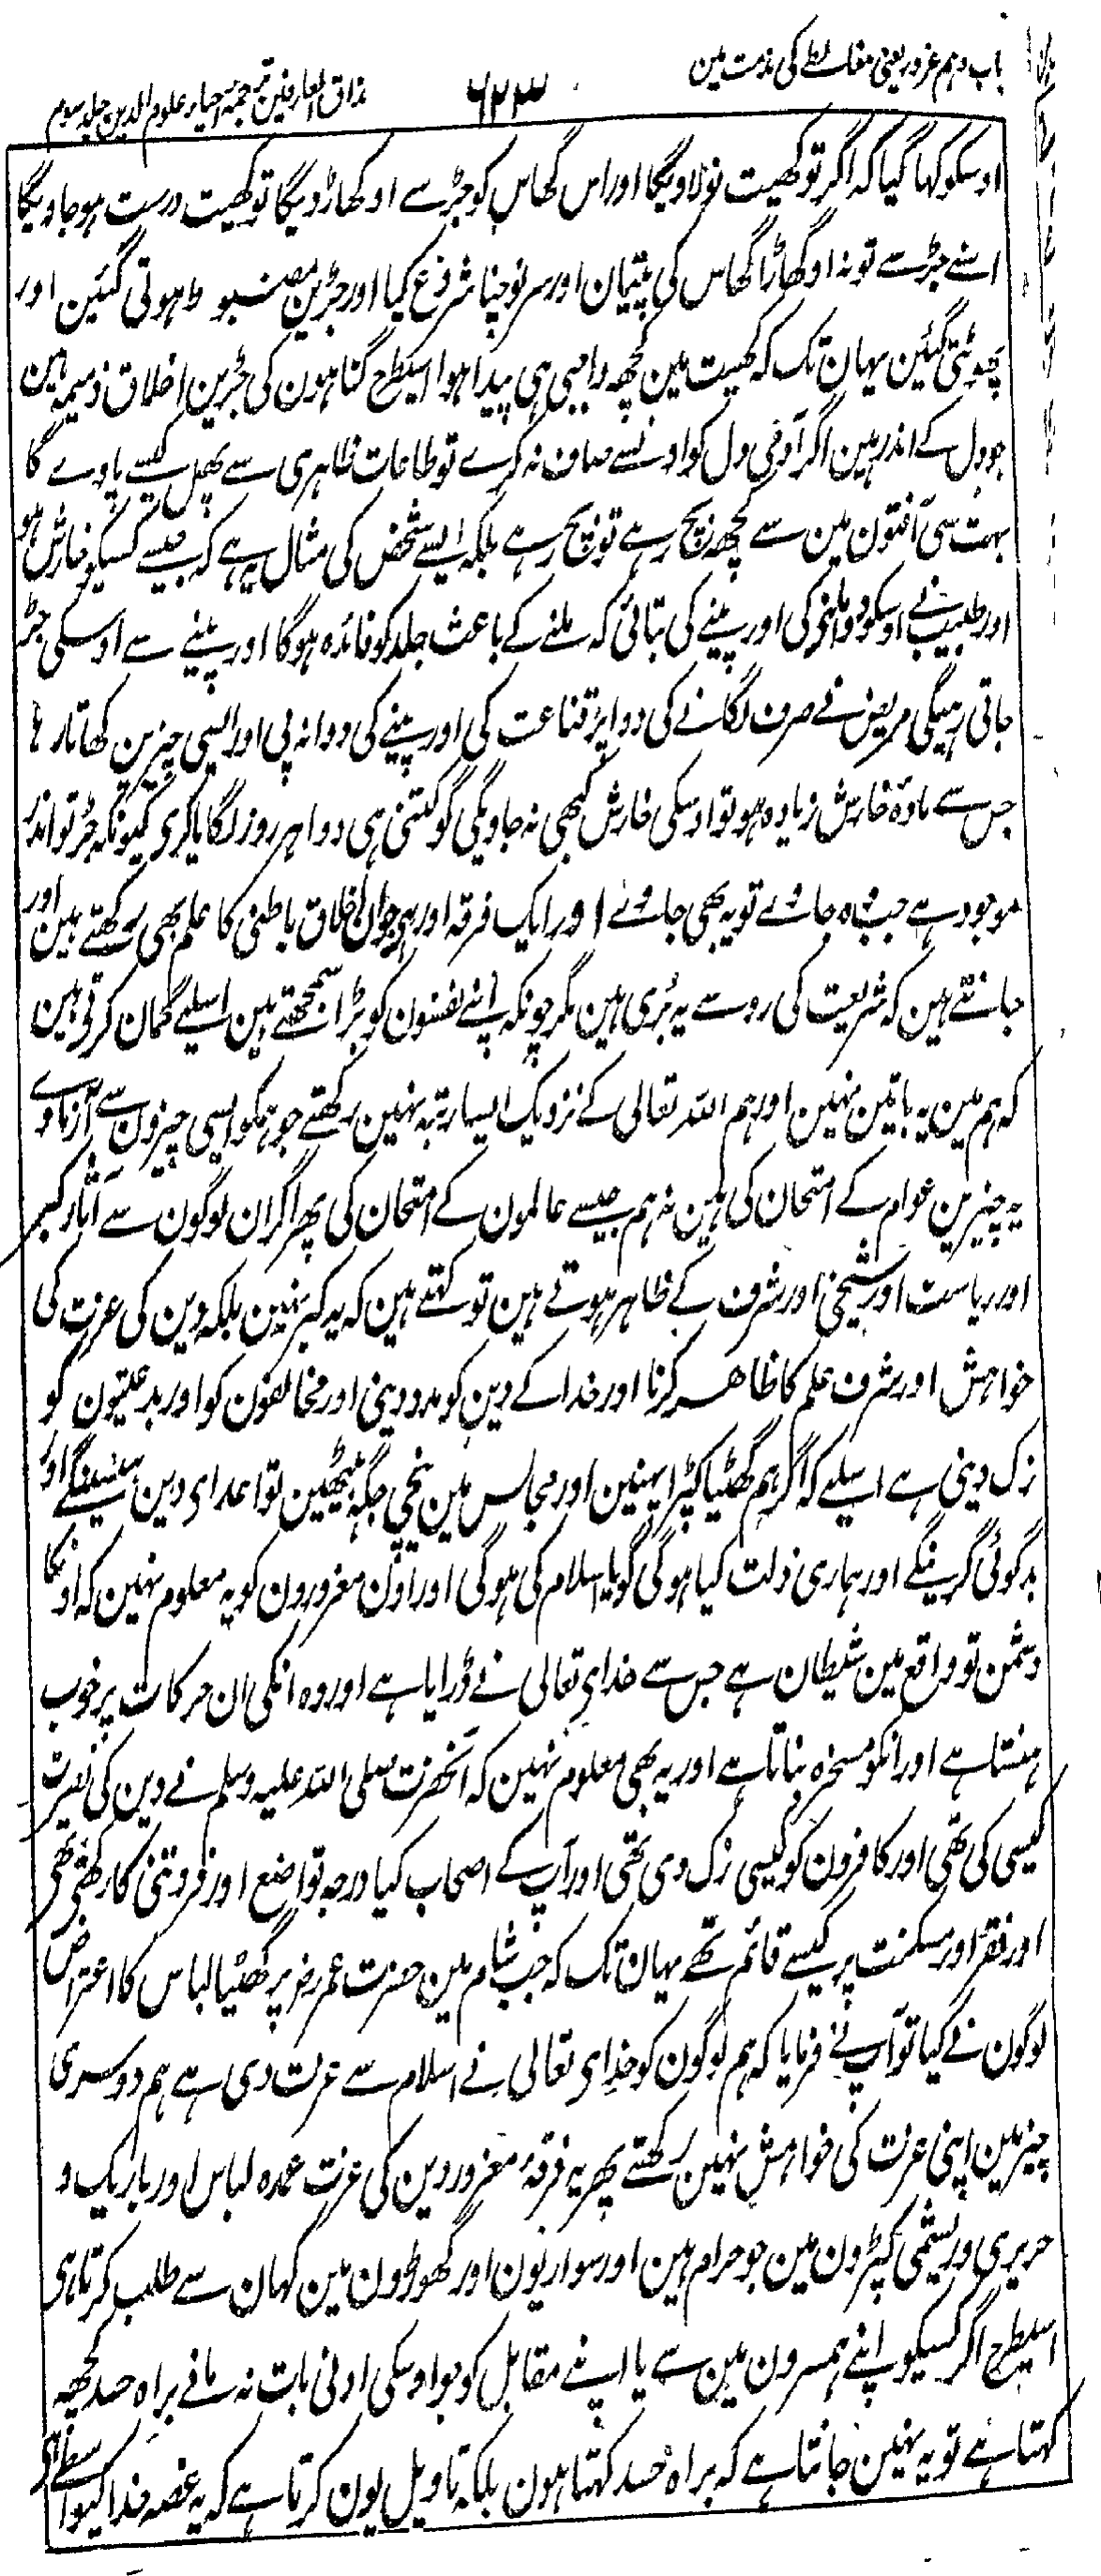 باب دہم غرور یعنی مغالطے کی مذمت مین
۶۲۳
مذاق العارفین ترجمہ احیاء علوم الدین جلد سوم
اوسکو کہا گیا کہ اگر تو کھیت نولاویگا اور اس گھاس کو جڑ سے اوکھاڑ دیگا تو کھیت درست ہوجاویگا
اسنے جڑ سے تو نہ اوکھاڑا گھاس کی پتیان اور سر نوچنا شروع کیا اور جڑین مضبوط ہوتی گئین اور
پھوٹتی گئین یہان تک کہ کھیت مین کچھ واجبی ہی پیدا ہوا اسیطرح گناہون کی جڑین اخلاق ذمیمہ ہین
جو دل کے اندر ہین اگر آدمی دل کو اونسے صاف نہ کرے تو طاعات ظاہری سے پھل کیسے پاوے گا
بہت سی آفتون مین سے کچھ بچ رہے تو بچ رہے بلکہ ایسے شخص کی مثال یہ ہے کہ جیسے کسیکو خارش ہو
اور طبیب نے اوسکو دوا ملنے کی اور پینے کی بتائی کہ ملنے کے باعث جلد کو فائدہ ہوگا اور پینے سے اوسکی جڑ
جاتی رہیگی مریض نے صرف لگانے کی دوا پر قناعت کی اور پینے کی دوا نہ پی اور ایسی چیزین کھاتا رہا
جس سے مادہ خارش زیادہ ہو تو اوسکی خارش کبھی نہ جاویگی گو کتنی ہی دوا ہر روز لگایا کرے کیونکہ جڑ تو اندر
موجود ہے جب وہ جاوے تو یہ بھی جاوے اور ایک فرقہ اور ہی جو ان اخلاق باطنی کا علم بھی رکھتے ہین اور
جانتے ہین کہ شریعت کی رو سے یہ بُری ہین مگر چونکہ اپنے نفسون کو بڑا سمجھتے ہین اسلیے گمان کرتی ہین
کہ ہم مین یہ باتین نہین اور ہم اللہ تعالی کے نزدیک ایسا رتبہ نہین رکھتے جو ہمکو ایسی چیزون سے آزماوے
یہ چیزین عوام کے امتحان کی ہین نہ ہم جیسے عالمون کے امتحان کی پھر اگر ان لوگون سے آثار کبر
اور ریاست اور شیخی اور شرف کے ظاہر ہوتے ہین تو کہتے ہین کہ یہ کبر نہین بلکہ دین کی عزت کی
خواہش اور شرف علم کا ظاہر کرنا اور خدا کے دین کو مدد دینی اور مخالفون کو اور بدعتیون کو
زک دینی ہے اسلیے کہ اگر ہم گھٹیا کپڑا پہنین اور مجالس مین نیچی جگہ بیٹھین تو اعدای دین ہنسینگے اور
بدگوئی کرینگے اور ہماری ذلت کیا ہوگی گویا اسلام کی ہوگی اور اون مغرورون کو یہ معلوم نہین کہ اونکا
دشمن تو واقع مین شیطان ہے جس سے خدای تعالی نے ڈرایا ہے اور وہ انکی ان حرکات پر خوب
ہنستا ہے اور انکو مسخرہ بناتا ہے اور یہ بھی معلوم نہین کہ آنحضرت صلی اللہ علیہ وسلم نے دین کی نصرت
کیسی کی تھی اور کافرون کو کیسی زک دی تھی اور آپ کے اصحاب کیا درجہ تواضع اور فروتنی کا رکھتے تھے
اور فقر اور مسکنت پر کیسے قائم تھے یہان تک کہ جب شام مین حضرت عمر رضہ پر گھٹیا لباس کا اعتراض
لوگون نے کیا تو آپ نے فرمایا کہ ہم لوگون کو خدای تعالی نے اسلام سے عزت دی ہے ہم دوسری
چیز مین اپنی عزت کی خواہش نہین رکھتے پھر یہ فرقۂ مغرور دین کی عزت عمدہ لباس اور باریک و
حریری و ریشمی کپڑون مین جو حرام ہین اور سواریون اور گھوڑون مین کہان سے طلب کرتا ہی
اسیطرح اگر کسیکو اپنے ہمسرون مین سے یا اپنے مقابل کو جو اوسکی اولٰی بات نہ مانے براہ حسد کچھ
کہتا ہے تو یہ نہین جانتا ہے کہ براہ حسد کہتا ہون بلکہ تاویل یون کرتا ہے کہ یہ غصہ خدا کیواسطے ہی